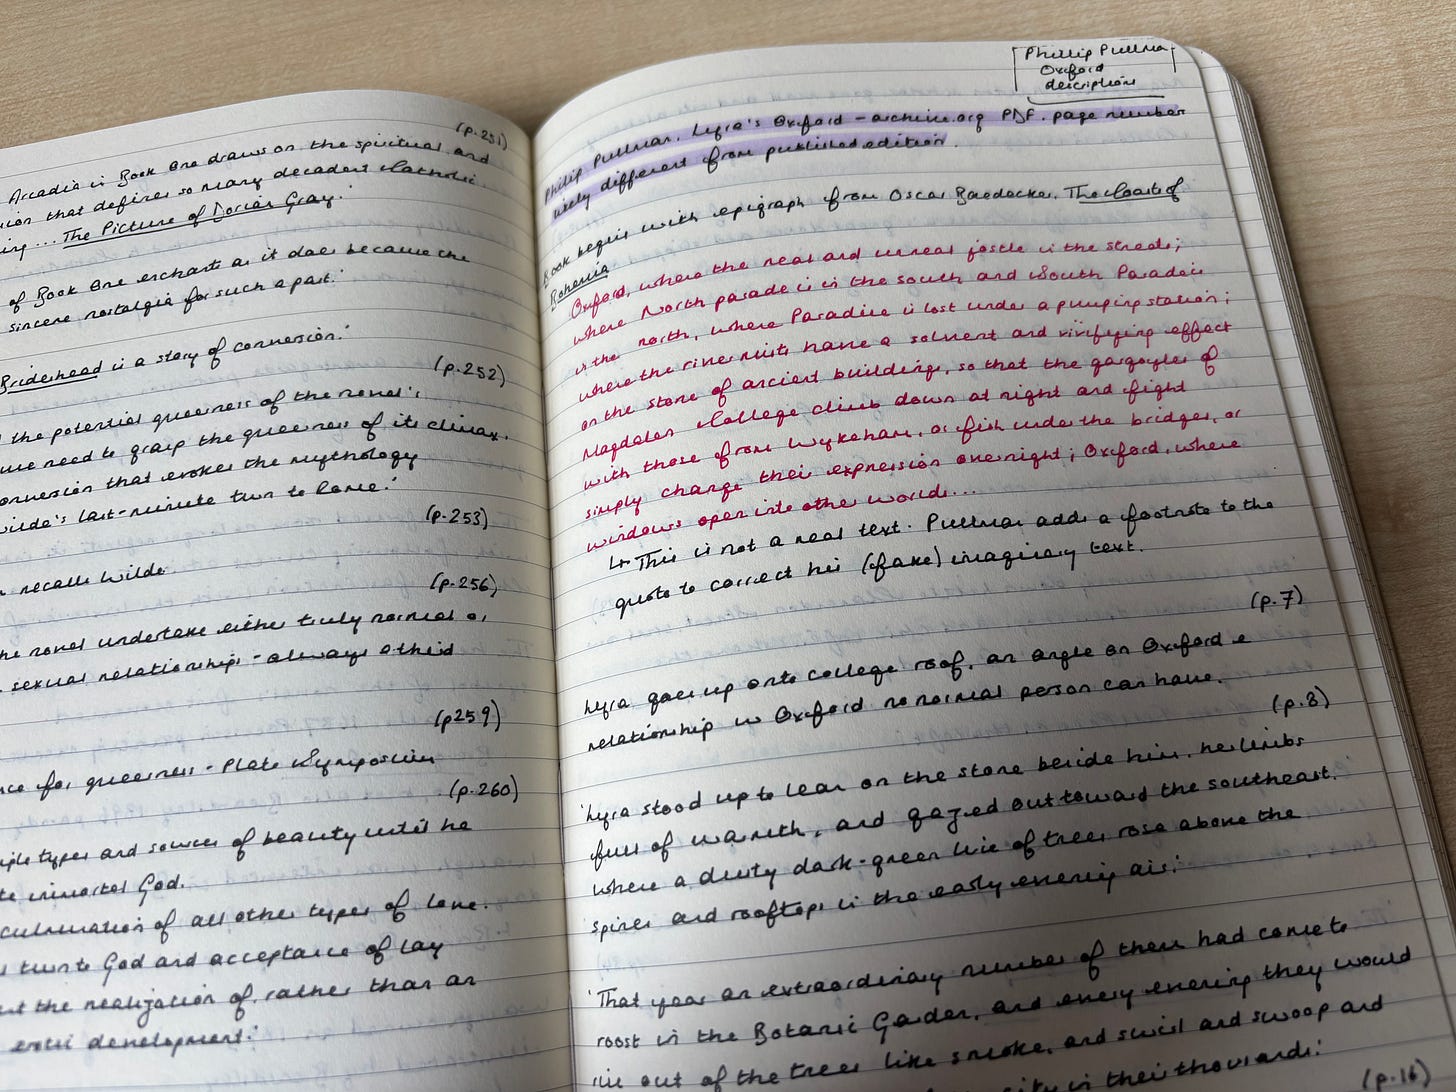 (p.251)
Arcadia in Book One draws on the spiritual and
that defines so many decadent Catholic
... The Picture of Dorian Gray.'
of Book One enchants as it does because the
sincere nostalgia for such a past.'
Brideshead is a story of conversion.'
(p.252)
the potential queerness of the novel's
we need to grasp the queerness of its climax.
conversion that evokes the mythology
Wilde's last-minute turn to Rome.'
(p.253)
recalls Wilde
(p.256)
the novel undertake either truly normal or
sexual relationships - always othered
(p259)
for queerness - Plato Symposium
(p.260)
types and sources of beauty until he
immortal God.
culmination of all other types of love.
turn to God and acceptance of
the realization of, rather than an
erotic development.'
Phillip Pullman
Oxford
descriptions
Philip Pullman, Lyra's Oxford - archive.org PDF. page number
likely different from published edition.
Book begins with epigraph from Oscar Baedecker, The Coasts of
Bohemia
Oxford, where the real and unreal jostle in the streets;
where North parade is in the south and South Parade is
in the north, where Paradise is lost under a pumping station;
where the river mists have a solvent and vivifying effect
on the stone of ancient buildings, so that the gargoyles of
Magdalen College climb down at night and fight
with those from Wykeham, or fish under the bridges, or
simply change their expression overnight; Oxford, where
windows open into other worlds...
↳ This is not a real text. Pullman adds a footnote to the
quote to correct his (fake) imaginary text.
(p.7)
Lyra goes up onto college roof, an angle on Oxford &
relationship w Oxford no normal person can have.
(p.8)
'Lyra stood up to lean on the stone beside him, her limbs
full of warmth, and gazed out toward the southeast,
where a dusty dark-green line of trees rose above the
spires and rooftops in the early evening air.'
'That year an extraordinary number of them had come to
roost in the Botanic Garden, and every evening they would
rise out of the trees like smoke, and swirl and swoop and
city in their thousands.'
(p.16)